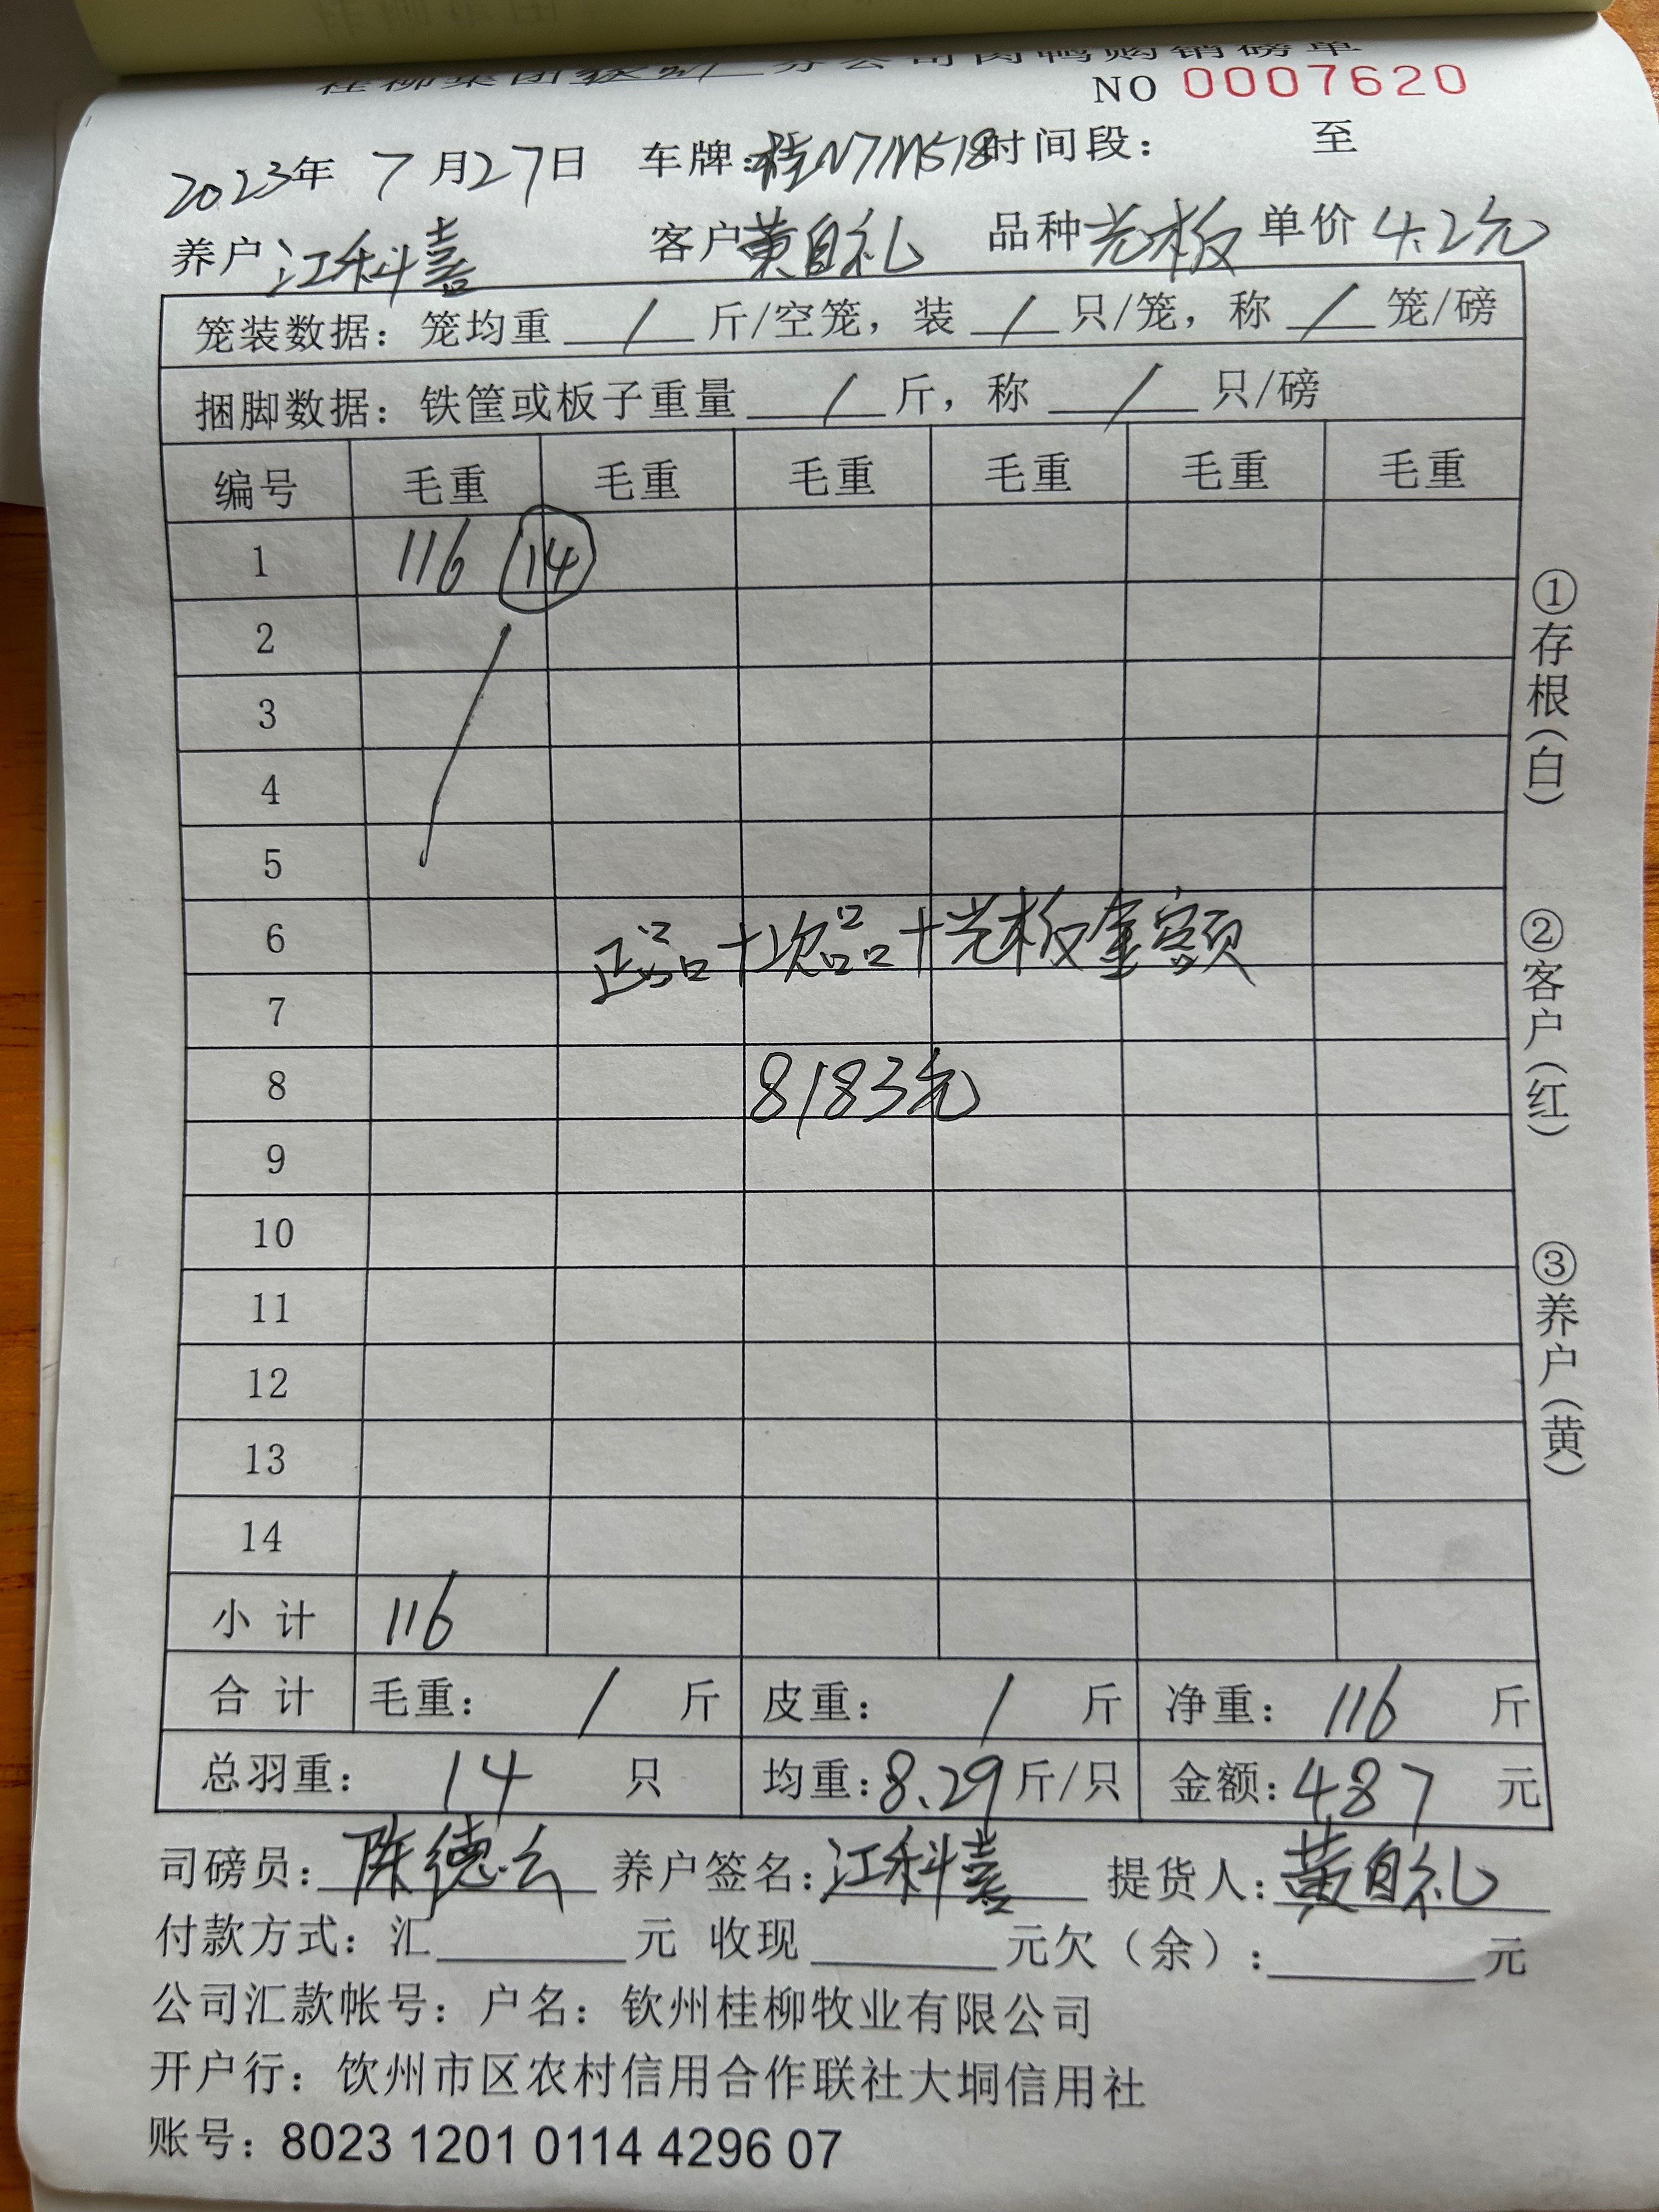 桂柳集团 分公司肉鸭购销磅单
NO 0007620
2023年 7月27日 车牌:桂N7M518 时间段: 至
养户 江科喜 客户 黄自礼 品种 光板 单价 4.2元
笼装数据: 笼均重 / 斤/空笼, 装 / 只/笼, 称 / 笼/磅
捆脚数据: 铁筐或板子重量 / 斤, 称 / 只/磅
编号 毛重 毛重 毛重 毛重 毛重 毛重
1 116 14
2
3
4
5
6 正品+次品+光板金额
7
8 8183元
9
10
11
12
13
14
小计 116
合计 毛重: / 斤 皮重: / 斤 净重: 116 斤
总羽重: 14 只 均重:8.29斤/只 金额:487 元
司磅员: 陈德么 养户签名:江科喜 提货人:黄自礼
付款方式: 汇 元 收现 元欠(余): 元
公司汇款帐号: 户名: 钦州桂柳牧业有限公司
开户行: 钦州市区农村信用合作联社大垌信用社
账号: 8023 1201 0114 4296 07
①存根(白)
②客户(红)
③养户(黄)